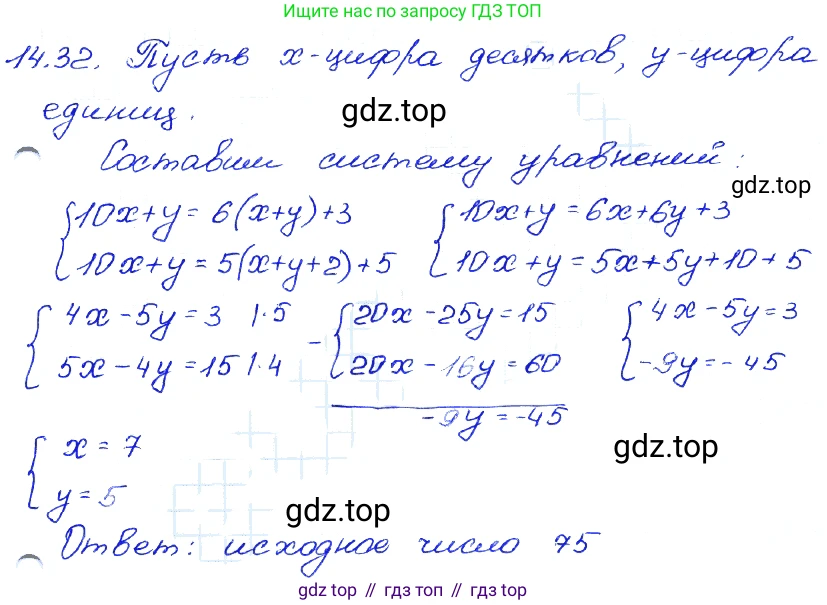 Ищите нас по запросу ГДЗ ТОП
14.32. Пусть x-цифра десятков, y-цифра
единиц.
gdz.top
Составим систему уравнений:
gdz.top
{10x+y = 6(x+y)+3 {10x+y = 6x+6y+3
{10x+y = 5(x+y+2)+5 {10x+y = 5x+5y+10+5
{4x-5y=3 |·5 - {20x-25y=15 {4x-5y=3
{5x-4y=15 |·4 {20x-16y=60 {-9y=-45
-9y=-45
{x=7
gdz.top
{y=5
gdz.top
Ответ: исходное число 75
gdz top // гдз топ // gdz.top // гдз топ